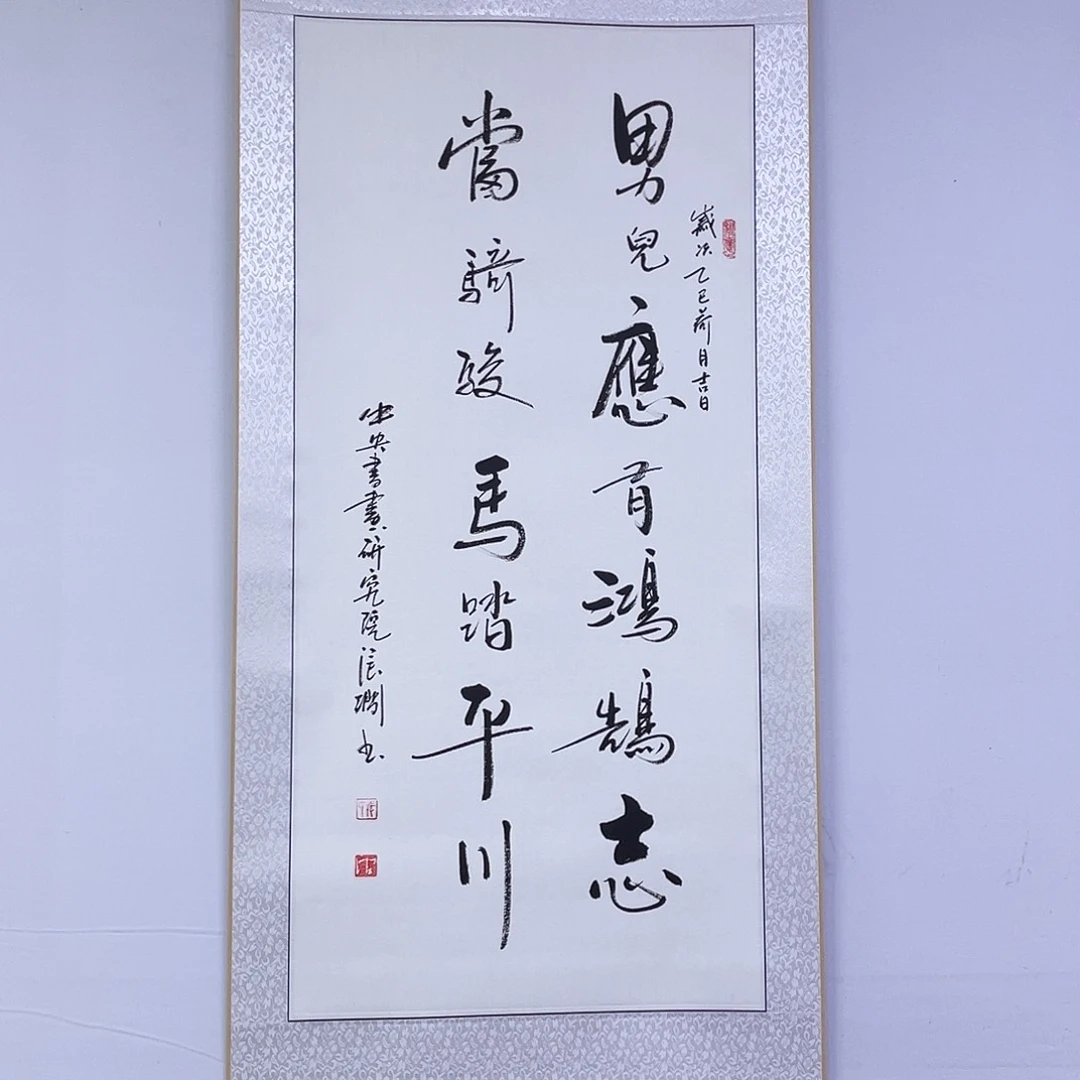 歲次乙巳荷月吉日
男兒應有鴻鵠志
當騎駿馬踏平川
中央書畫研究院 書